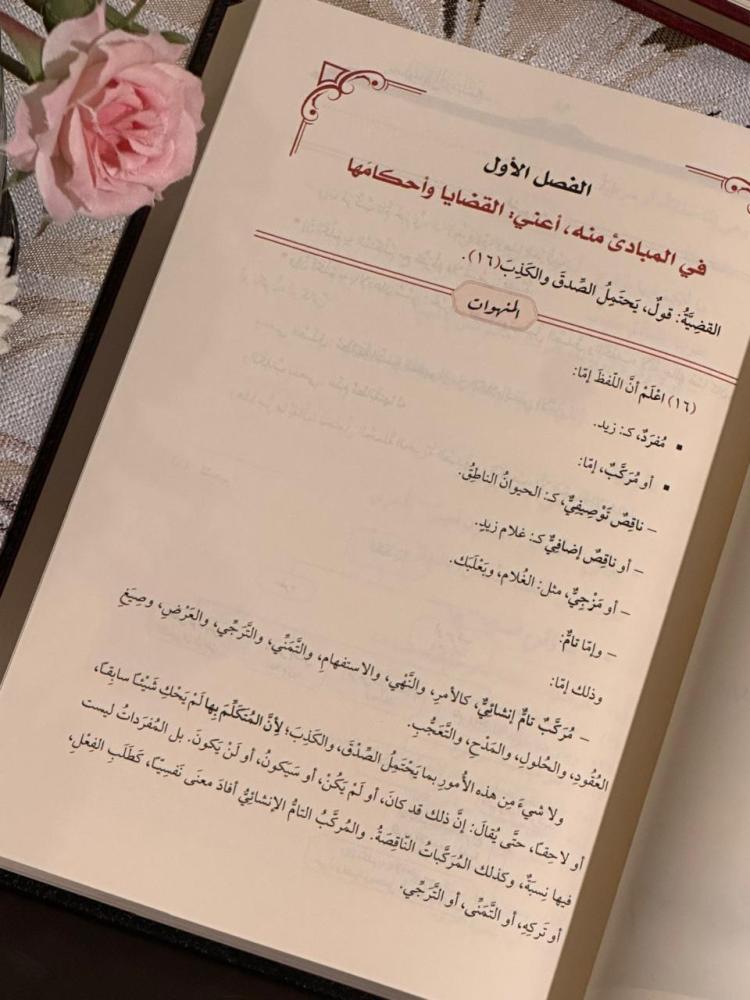 الفصل الأول
في المبادئ منه، أعني: القضايا وأحكامها
القضيَّةُ: قولٌ، يَحتَمِلُ الصِّدقَ والكَذِبَ(١٦).
المنهوات
(١٦) اعْلَمْ أنَّ اللَّفظَ إمّا:
▪ مُفرَدٌ، كـ: زيد.
▪ أو مُركَّبٌ، إمّا:
– ناقِصٌ تَوْصِيفِيٌّ، كـ: الحيوانُ الناطِقُ.
– أو ناقِصٌ إضافِيٌّ كـ: غلام زيدٍ.
– أو مَزْجِيٌّ، مثل: الغُلام، وبَعْلَبَك.
– وإمّا تامٌّ:
وذلك إمّا:
– مُركَّبٌ تامٌّ إنشائيٌّ، كالأمرِ، والنَّهْيِ، والاستفهامِ، والتَّمَنِّي، والتَّرَجِّي، والعَرْضِ، وصِيَغِ
العُقُودِ، والحُلولِ، والمَدْحِ، والتَّعَجُّبِ.
ولا شيءَ مِن هذه الأُمورِ بما يَحْتَمِلُ الصِّدْقَ، والكَذِبَ؛ لِأنَّ المُتَكَلِّمَ بِها لَمْ يَحْكِ شَيْئًا سابِقًا،
أو لاحِقًا، حتَّى يُقالَ: إنَّ ذلك قد كانَ، أو لَمْ يَكُنْ، أو سَيَكُونُ، أو لَنْ يَكونَ. بل المُفرَداتُ ليست
فيها نِسبَةٌ، وكذلك المُرَكَّباتُ النّاقِصَةُ. والمُركَّبُ التامُّ الإنشائِيُّ أفادَ معنَى نَفْسِيًّا، كَطَلَبِ الفِعْلِ،
أو تَركِهِ، أو التَّمَنِّي، أو التَّرَجِّي.